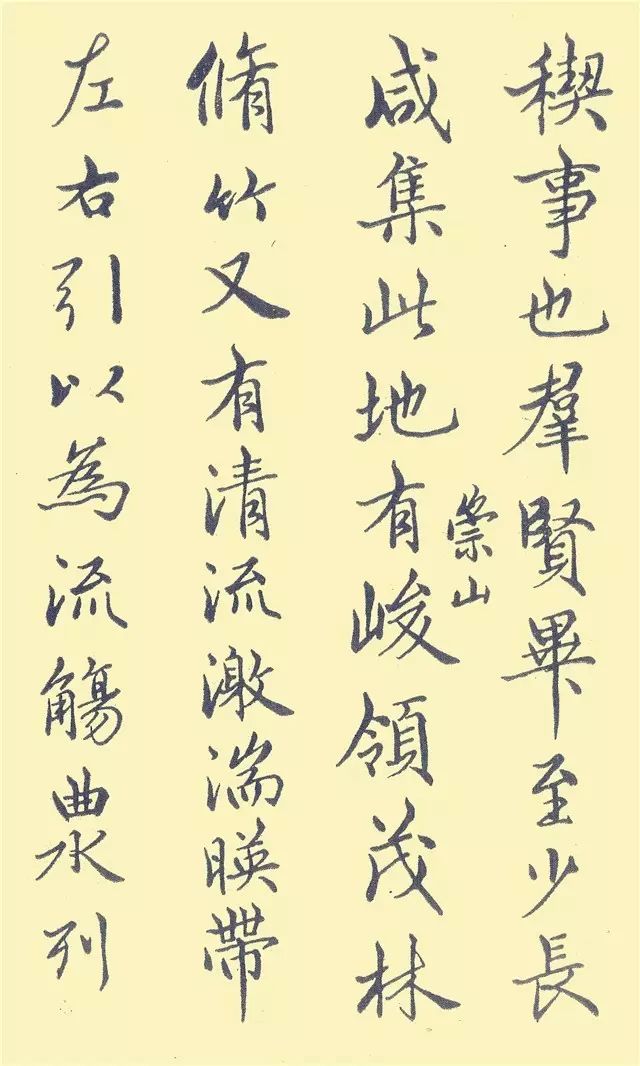 稧事也羣賢畢至少長
咸集此地有崇山峻領茂林
脩竹又有清流激湍暎帶
左右引以為流觴曲水列